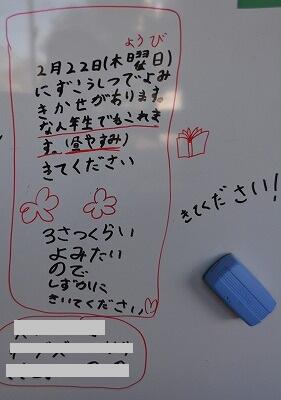 ようび
2月22日(木曜日)
にずこうしつでよみ
きかせがあります。
なん年生でもこれま
す。(昼やすみ)
きてください
3さつくらい
よみたい
ので
しずかに
きいてください
きてください!